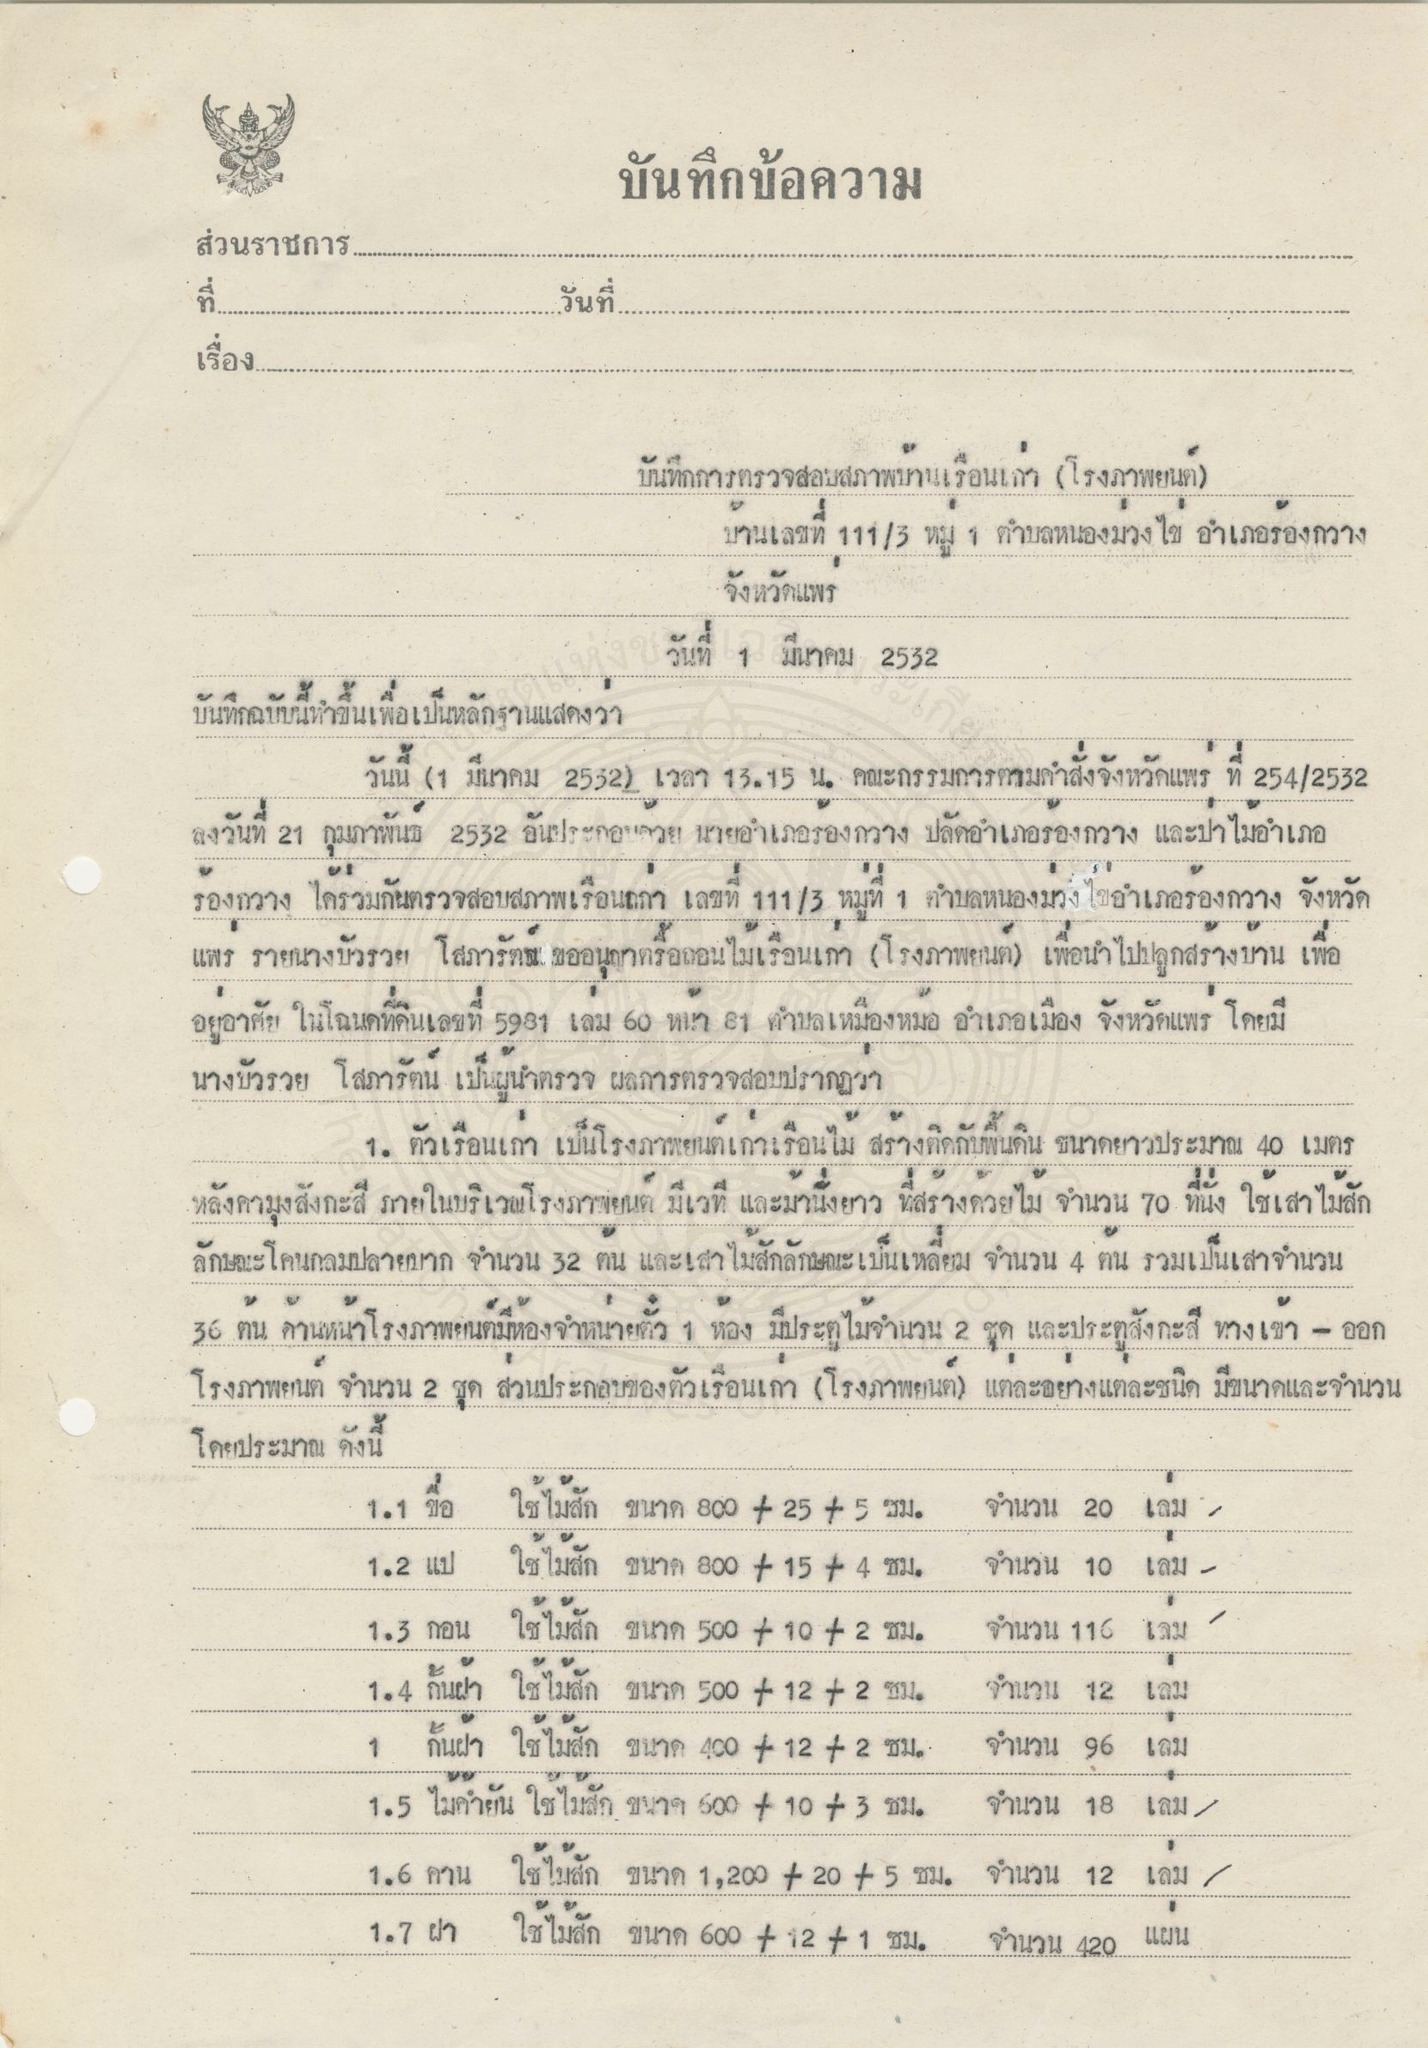 บันทึกข้อความ
ส่วนราชการ
ที่ วันที่
เรื่อง
บันทึกการตรวจสอบสภาพบ้านเรือนเก่า (โรงภาพยนต์)
บ้านเลขที่ 111/3 หมู่ 1 ตำบลหนองม่วงไข่ อำเภอร้องกวาง
จังหวัดแพร่
วันที่ 1 มีนาคม 2532
บันทึกฉบับนี้ทำขึ้นเพื่อเป็นหลักฐานแสดงว่า
วันนี้ (1 มีนาคม 2532) เวลา 13.15 น. คณะกรรมการตามคำสั่งจังหวัดแพร่ ที่ 254/2532
ลงวันที่ 21 กุมภาพันธ์ 2532 อันประกอบด้วย นายอำเภอร้องกวาง ปลัดอำเภอร้องกวาง และป่าไม้อำเภอ
ร้องกวาง ได้ร่วมกันตรวจสอบสภาพเรือนเก่า เลขที่ 111/3 หมู่ที่ 1 ตำบลหนองม่วงไข่อำเภอร้องกวาง จังหวัด
แพร่ รายนางบัวรวย โสภารัตน์ ขออนุญาตรื้อถอนไม้เรือนเก่า (โรงภาพยนต์) เพื่อนำไปปลูกสร้างบ้าน เพื่อ
อยู่อาศัย ในโฉนดที่ดินเลขที่ 5981 เล่ม 60 หน้า 81 ตำบลเหมืองหม้อ อำเภอเมือง จังหวัดแพร่ โดยมี
นางบัวรวย โสภารัตน์ เป็นผู้นำตรวจ ผลการตรวจสอบปรากฏว่า
1. ตัวเรือนเก่า เป็นโรงภาพยนต์เก่าเรือนไม้ สร้างติดกับพื้นดิน ขนาดยาวประมาณ 40 เมตร
หลังคามุงสังกะสี ภายในบริเวณโรงภาพยนต์ มีเวที และม้านั่งยาว ที่สร้างด้วยไม้ จำนวน 70 ที่นั่ง ใช้เสาไม้สัก
ลักษณะโคนกลมปลายบาก จำนวน 32 ต้น และเสาไม้สักลักษณะเป็นเหลี่ยม จำนวน 4 ต้น รวมเป็นเสาจำนวน
36 ต้น ด้านหน้าโรงภาพยนต์มีห้องจำหน่ายตั๋ว 1 ห้อง มีประตูไม้จำนวน 2 ชุด และประตูสังกะสี ทางเข้า - ออก
โรงภาพยนต์ จำนวน 2 ชุด ส่วนประกอบของตัวเรือนเก่า (โรงภาพยนต์) แต่ละอย่างแต่ละชนิด มีขนาดและจำนวน
โดยประมาณ ดังนี้
1.1 ขื่อ ใช้ไม้สัก ขนาด 800 + 25 + 5 ซม. จำนวน 20 เล่ม
1.2 แป ใช้ไม้สัก ขนาด 800 + 15 + 4 ซม. จำนวน 10 เล่ม
1.3 กอน ใช้ไม้สัก ขนาด 500 + 10 + 2 ซม. จำนวน 116 เล่ม
1.4 กั้นฝ้า ใช้ไม้สัก ขนาด 500 + 12 + 2 ซม. จำนวน 12 เล่ม
1 กั้นฝ้า ใช้ไม้สัก ขนาด 400 + 12 + 2 ซม. จำนวน 96 เล่ม
1.5 ไม้ค้ำยัน ใช้ไม้สัก ขนาด 600 + 10 + 3 ซม. จำนวน 18 เล่ม
1.6 คาน ใช้ไม้สัก ขนาด 1,200 + 20 + 5 ซม. จำนวน 12 เล่ม
1.7 ฝา ใช้ไม้สัก ขนาด 600 + 12 + 1 ซม. จำนวน 420 แผ่น